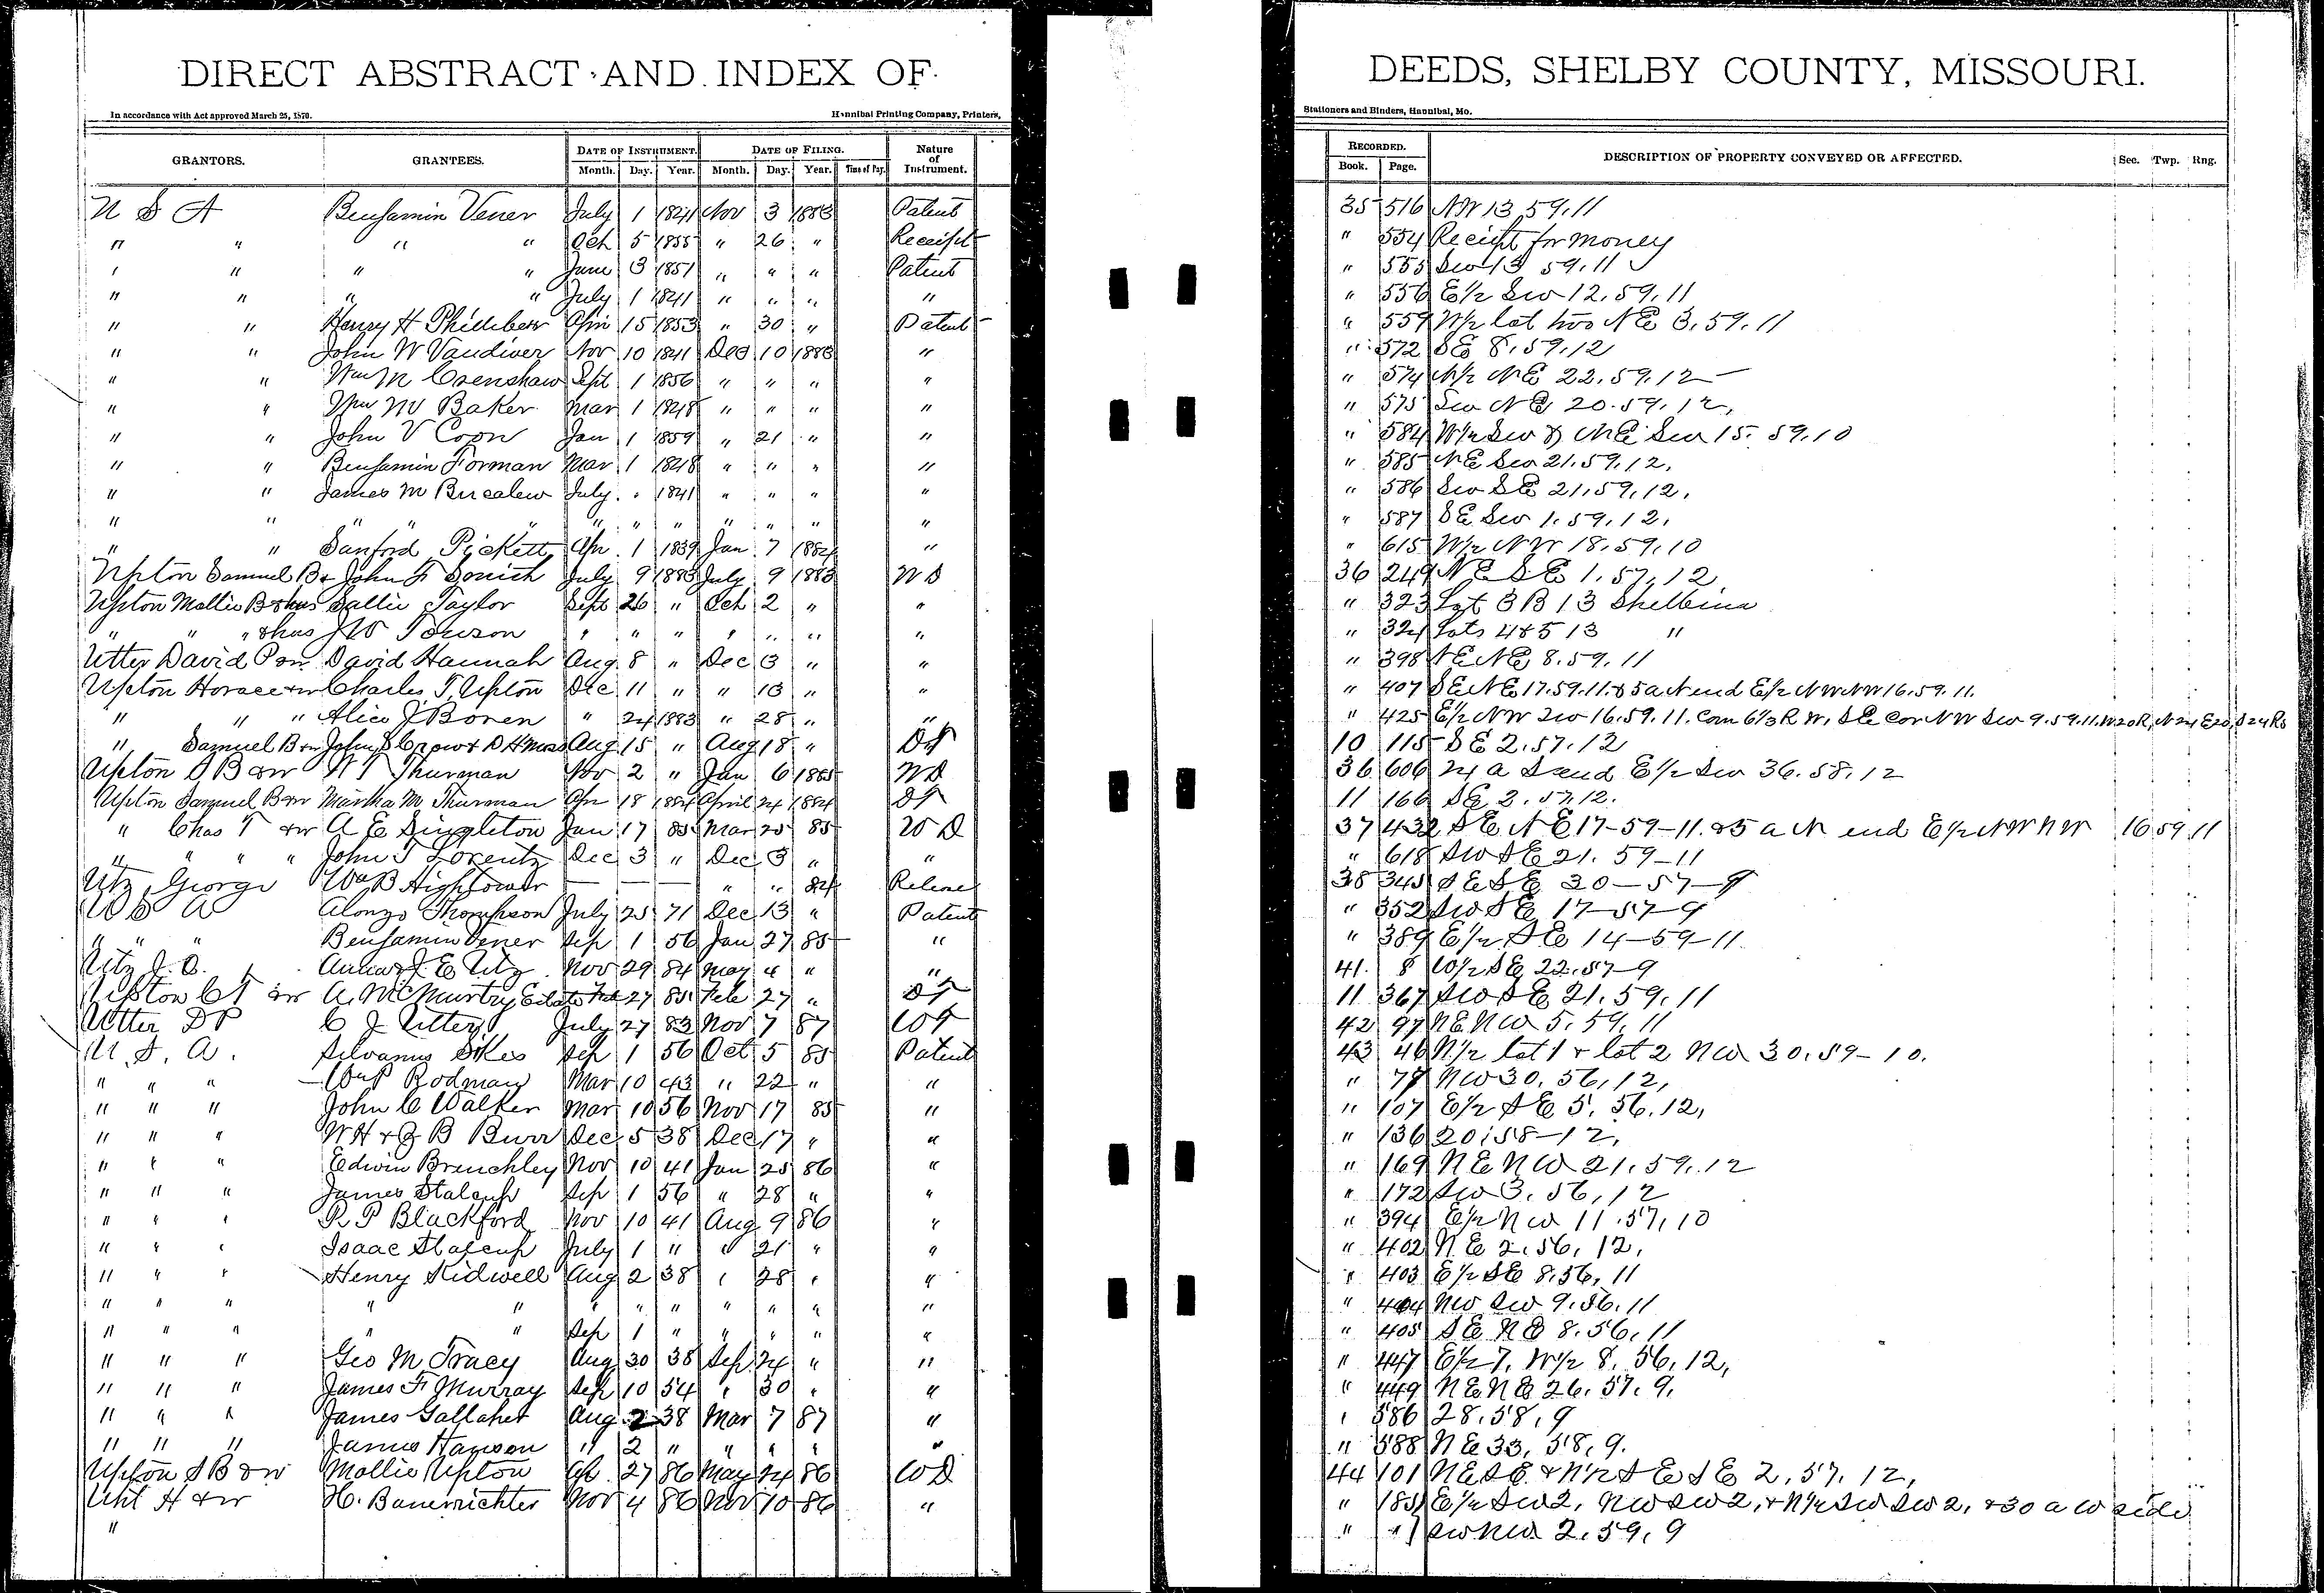 DIRECT ABSTRACT AND INDEX OF DEEDS, SHELBY COUNTY, MISSOURI.
In accordance with Act approved March 25, 1870. Hannibal Printing Company, Printers, Stationers and Binders, Hannibal, Mo.
GRANTORS. GRANTEES. DATE OF INSTRUMENT. DATE OF FILING. Nature of Instrument. RECORDED. DESCRIPTION OF PROPERTY CONVEYED OR AFFECTED. Sec. Twp. Rng.
Month. Day. Year. Month. Day. Year. Time of Day. Book. Page.
U S A Benjamin Vener July 1 1841 Nov 3 1883 Patent 35 516 NW 13 59.11
" " " " Oct 5 1855 " 26 " Receipt " 554 Reciept for money
" " " " June 3 1851 " " " Patent " 555 Sw 13 59.11
" " " " July 1 1841 " " " " " 556 E1/2 Sw 12.59.11
" " Henry H Phillibert Apr 15 1853 " 30 " Patent " 559 W1/2 lot two NE 3.59.11
" " John W Vandiver Nov 10 1841 Dec 10 1883 " " 572 SE 8.59.12
" " Wm M Crenshaw Sept 1 1856 " " " " " 574 N1/2 NE 22.59.12
" " Wm W Baker Mar 1 1848 " " " " " 575 Sw NE 20.59.12,
" " John V Coon Jan 1 1859 " 21 " " " 584 W1/2 Sw & NE Sw 15.59.10
" " Benjamin Forman Mar 1 1848 " " " " " 585 NE Sw 21.59.12.
" " James M Bucalew July " 1841 " " " " " 586 Sw SE 21.59.12.
" " " " " " " " " " " " " 587 SE Sw 1.59.12.
" " Sanford Pickett Apr 1 1839 Jan 7 1884 " " 615 W1/2 NW 18.59.10
Upton Samuel B & John F Sonich July 9 1883 July 9 1883 WD 36 249 NE SE 1.57.12
Upton Mollie B & hus Sallie Taylor Sept 26 " Oct 2 " " " 323 Lot 3 B 13 Shelbina
" " " & hus J W Towson " " " " " " " " 324 Lots 4 & 5 13 "
Utter David P & w David Hannah Aug 8 " Dec 3 " " " 398 NE NE 8.59.11
Upton Horace & w Charles T. Upton Dec 11 " " 13 " " " 407 SE NE 17.59.11. & 5 a N end E1/2 NW NW 16.59.11.
" " " Alice J Boren " 24 1883 " 28 " " " 425 E1/2 NW Sw 16.59.11. Com 6 1/3 R W. SE Cor NW Sw 9.59.11. W 20 R, N 24 E 20, S 24 Rs
" Samuel B & w John S Crow & D H Moss Aug 15 " Aug 18 " DT 10 115 SE 2.57.12
Upton S B & w W T Thurman Nov 2 " Jan 6 1885 WD 36 606 24 a S end E1/2 Sw 36.58.12
Upton Samuel B & w Martha M Thurman Apr 18 1884 April 24 1884 DT 11 166 SE 2.57.12.
" Chas T & w A E Singleton Jan 17 85 Mar 25 85 W D 37 432 SE NE 17-59-11. & 5 a N end E1/2 NW NW 16 59 11
" " " " John T Lorentz Dec 3 " Dec 3 " " " 618 SW SE 21. 59-11
Utz, George Wm B Hightower — — — " " 84 Release 38 345 SE SE 30-57-9
U S A Alonzo Thompson July 25 71 Dec 13 " Patent " 352 SW SE 17-57-9
" " " Benjamin Vener Sep 1 56 Jan 27 85 " " 389 E1/2 SE 14-59-11.
Utz J. C. Utz Nov 29 84 May 4 " " 41. 8 W1/2 SE 22.57-9
Upton C T & w A. McMurtry Estate Feb 27 85 Feb 27 " DT 11 367 SW SE 21.59.11
Utter D P C J Utter July 27 83 Nov 7 87 42 97 NE NW 5.59.11
U. S. A. Silvanus Sikes Sep 1 56 Oct 5 85 Patent 43 46 N1/2 lot 1 & lot 2 NW 30.59-10.
" " " Wm P Rodman Mar 10 43 " 22 " " " 77 NW 30.56.12,
" " " John C Walker Mar 10 56 Nov 17 85 " " 107 E1/2 SE 5.56.12,
" " " W H & J B Burr Dec 5 38 Dec 17 " " " 136 20.58-12,
" " " Edwin Brenchley Nov 10 41 Jan 25 86 " " 169 NE NW 21.59.12
" " " James Stalcup Sep 1 56 " 28 " " " 172 SW 3.56.12
" " " R. P Blackford Nov 10 41 Aug 9 86 " " 394 E1/2 NW 11.57.10
" " " Isaac Stalcup July 1 " " 21 " " " 402 NE 2.56.12,
" " " Henry Kidwell Aug 2 38 " 28 " " " 403 E1/2 SE 8.56.11
" " " " " " " " " " " " " 404 NW SW 9.56.11
" " " " " Sep 1 " " " " " " 405 SE NE 8.56.11
" " " Geo M. Tracy Aug 30 38 Sep 24 " " " 447 E1/2 7, W1/2 8, 56,12,
" " " James F. Murray Sep 10 54 " 30 " " " 449 NE NE 26.57.9,
" " " James Gallaher Aug 2 38 Mar 7 87 " " 586 28.58,9
" " " James Hanson " 2 " " " " " " 588 NE 33, 58,9.
Upton S B & w Mollie Upton Ap. 27 86 May 24 86 WD 44 101 NE SE & N1/2 SE SE 2,57,12,
Uht H & w H. Bauerrichter Nov 4 86 Nov 10 86 " " 185 E1/2 SW 2, NW SW 2, & N1/2 SW SW 2, & 30 a W side
" " " SW NW 2.59,9